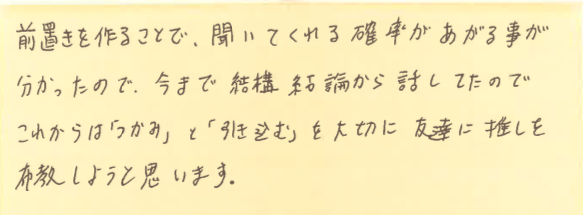 前置きを作ることで、聞いてくれる確率があがる事が
分かったので、今まで結構結論から話してたので
これからは「つかみ」と「引き込む」を大切に友達に推しを
布教しようと思います。